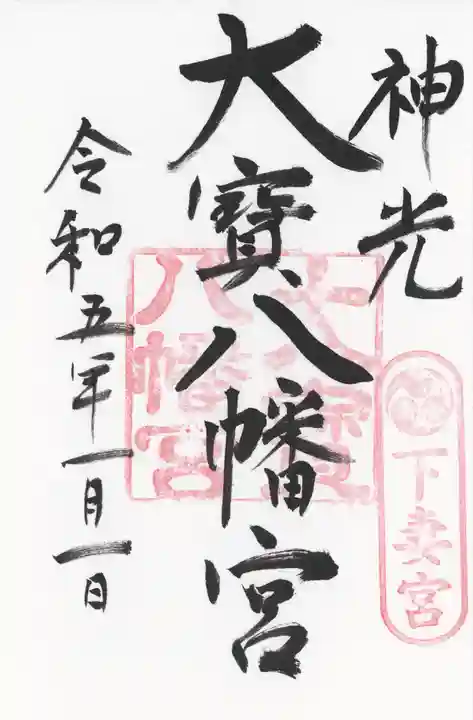 神光
下妻宮
大寳八幡宮
大寳
八幡宮
令和五年一月一日